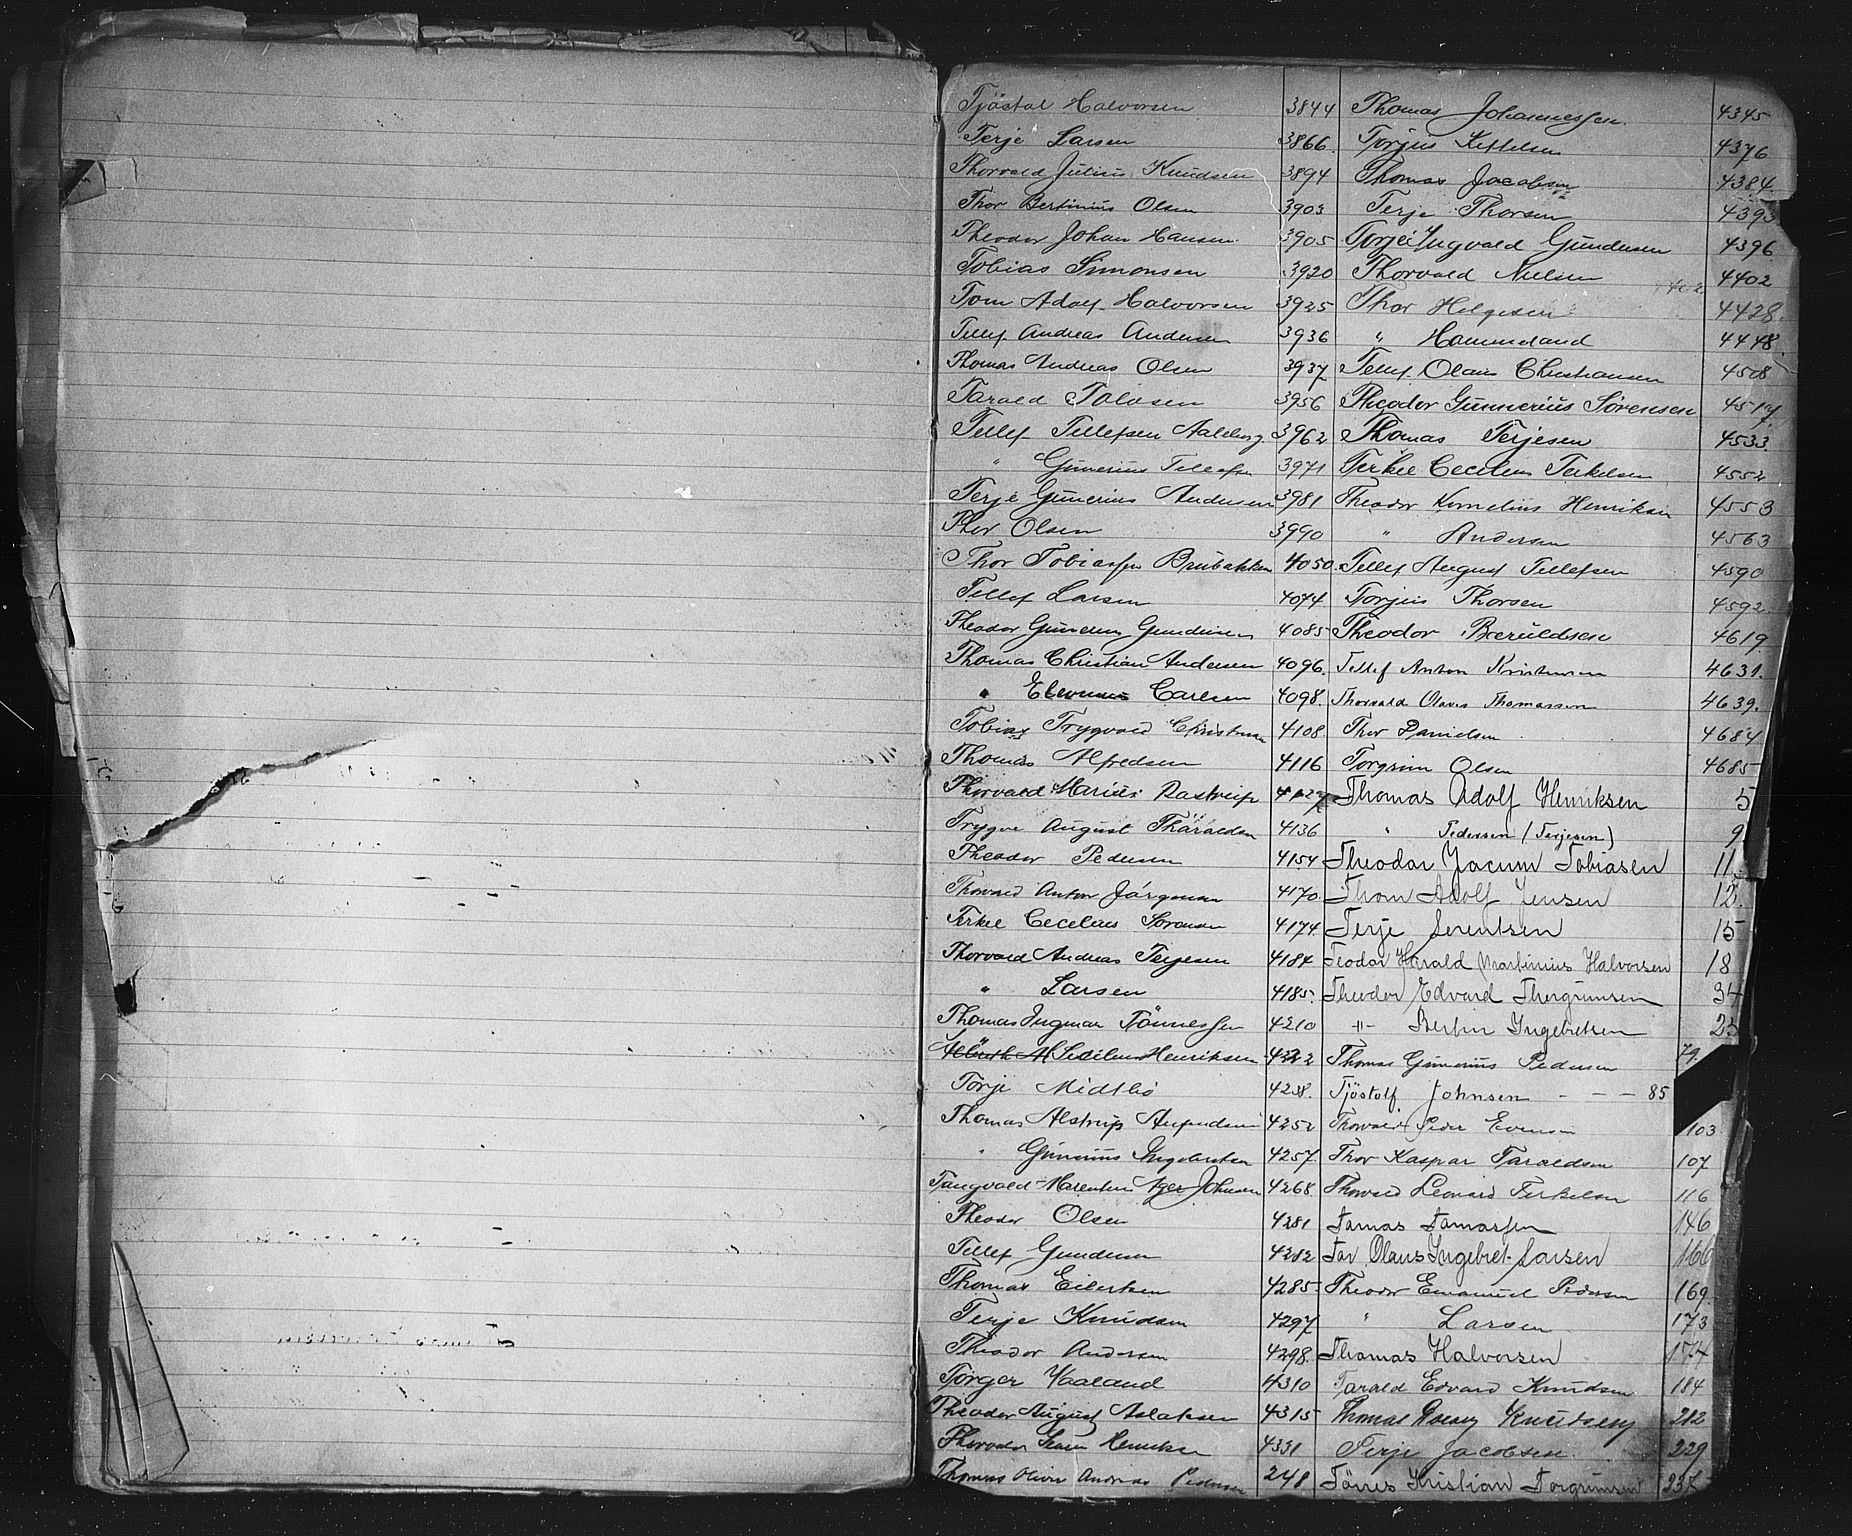 Tjöstal Halvorsen 3844
Terje Larsen 3866
Thorvald Julius Knudsen 3894
Thor Bertinius Olsen 3903
Theodor Johan Hansen 3905
Tobias Simonsen 3920
Tom Adolf Halvorsen 3925
Tellef Andreas Andersen 3936
Thomas Andreas Olsen 3937
Tarald Tolvsen 3956
Tellef Tellefsen Aalborg 3962
" Gunerius Tellefsen 3971
Terje Gunerius Andersen 3981
Thor Olsen 3990
Thor Tobiassen Brubakken 4050
Tellef Larsen 4074
Theodor Gundersen 4085
Thomas Christian Andersen 4096
" Carlsen 4098
Tobias Trygvald Christensen 4108
Thomas Alfredsen 4116
Thorvald Marius Rastrup 4127
Trygve August Tharaldsen 4136
Theodor Pedersen 4154
Thorvald Anton Jörgensen 4170
Terkel Cecelius Sörensen 4174
Thorvald Andreas Terjesen 4184
" Larsen 4185
Thomas Ingmar Tönnessen 4210
Henriksen
Torje Midtbö 4238
Thomas Alstrup 4252
" Gunerius Ingebretsen 4257
Tangvald Johnsen 4268
Theodor Olsen 4281
Tellef Gundersen 4282
Thomas Eilertsen 4285
Terje Knudsen 4297
Theodor Andersen 4298
Törger Haaland 4310
Theodor August Aslaksen 4315
Henriksen 4331
Thomas Oliver Andreas Pedersen 248
Thomas Johannessen 4345
Torjus Kittelsen 4376
Thomas Jacobsen 4384
Terje Thorsen 4393
Torje Ingvald Gundersen 4396
Thorvald Nielsen 4402
Thor Helgesen 4428
" Hammeland 4448
Tellef Olaus Christiansen 4508
Theodor Gunnerius Sörensen 4517
Thomas Terjesen 4533
Terkel Cecelius Terkelsen 4552
Theodor Kornelius Henriksen 4553
" Andersen 4563
Tellef August Tellefsen 4590
Torjus Thorsen 4592
Theodor Beruldsen 4619
Tellef Anton Kristensen 4631
Thorvald Olaves Thomassen 4639
Thor Danielsen 4684
Torgrim Olsen 4685
Thomas Adolf Henriksen 5
" Pedersen (Terjesen) 9
Theodor Jacum Tobiasen 11
Thom Adolf Jensen 12
Terje Jerentsen 15
Teodor Harald Martinius Halvorsen 18
Theodor Edvard Thorgrimsen 34
-"- Bertin Ingebretsen 23
Thomas Gunerius Pedersen 79
Tjöstolf Johnsen - - - 85
Thorvald Peder Evensen 103
Thor Kaspar Taraldsen 107
Thorvald Leonard Terkelsen 116
Tomas Tomassen 146
Tor Olaus Ingebret Larsen 166
Theodor Emanuel Pedersen 169
" Larsen 173
Thomas Halvorsen 174
Tarald Edvard Knudsen 184
Thomas Knudsen 212
Terje Jacobsen 229
Tönes Kristian Torgrimsen 237